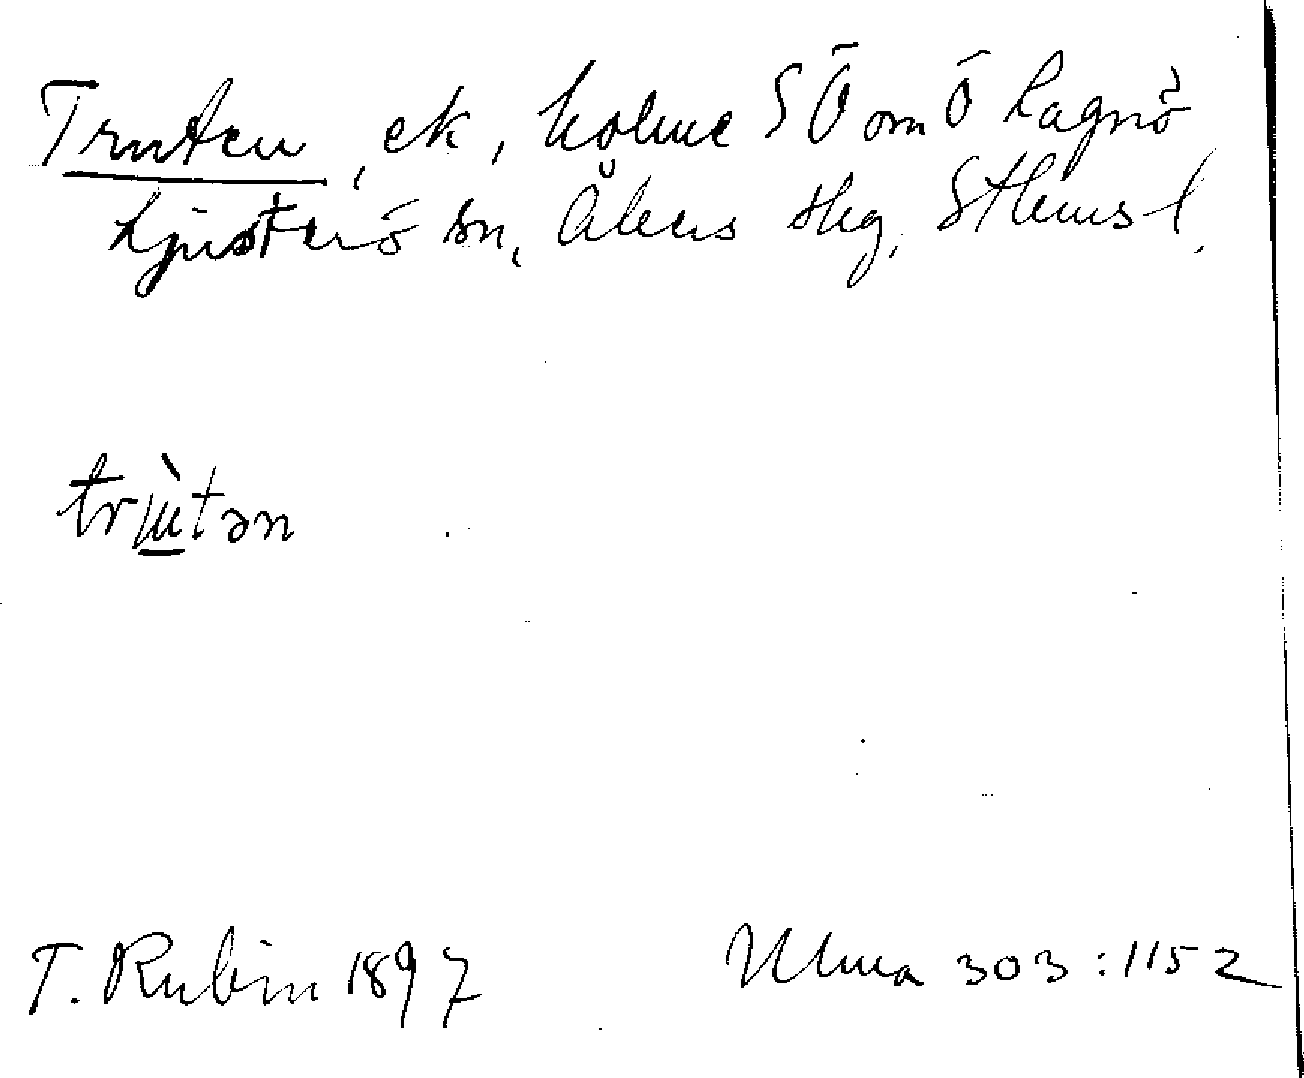 Truten, ek, holme SÖ om Ö Lagnö
Ljusterö sn, Åkers skg, Sthms l.
trɯ̀tən
T. Rubin 1897
Ulma 303:1152